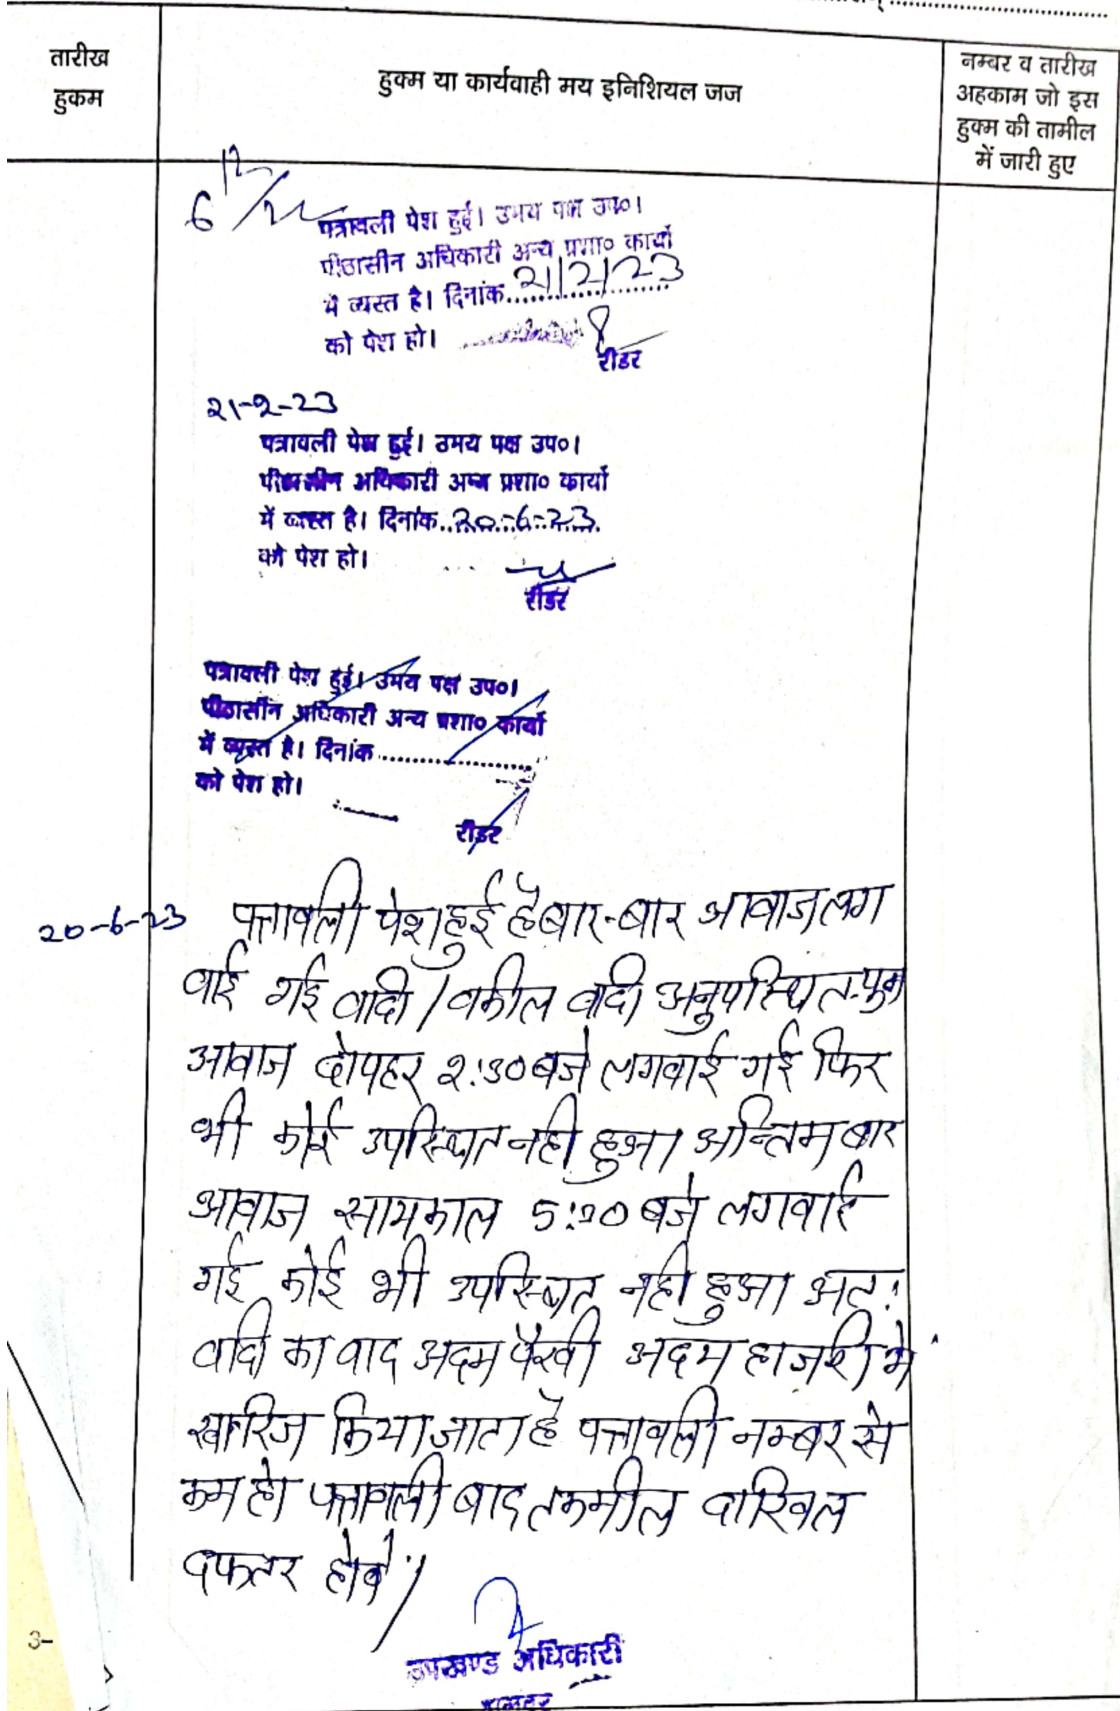 तारीख
हुकम
हुक्म या कार्यवाही मय इनिशियल जज
नम्बर व तारीख
अहकाम जो इस
हुक्म की तामील
में जारी हुए
पत्रावली पेश हुई। उभय पक्ष उप०।
पीठासीन अधिकारी अन्य प्रशा० कार्यो
में व्यस्त है। दिनांक 21/2/23
को पेश हो।
रीडर
21-2-23
पत्रावली पेश हुई। उभय पक्ष उप०।
पीठासीन अधिकारी अन्य प्रशा० कार्यो
में व्यस्त है। दिनांक 20-6-23
को पेश हो।
रीडर
पत्रावली पेश हुई। उभय पक्ष उप०।
पीठासीन अधिकारी अन्य प्रशा० कार्यो
में व्यस्त है। दिनांक ....................
को पेश हो।
रीडर
20-6-23 पत्रावली पेश हुई है बार-बार आवाज लग
वाई गई वादी / वकील वादी अनुपस्थित
आवाज दोपहर 2:30 बजे लगवाई गई फिर
भी कोई उपस्थित नही हुआ। अन्तिम बार
आवाज सायंकाल बजे लगवाई
गई कोई भी उपस्थित नही हुआ अत:
वादी का वाद अदम पैरवी अदम हाजरी मे
खारिज किया जाता है पत्रावली नम्बर से
कम हो पत्रावली बाद तकमील दाखिल
दफ्तर होवे।
उपखण्ड अधिकारी
3-